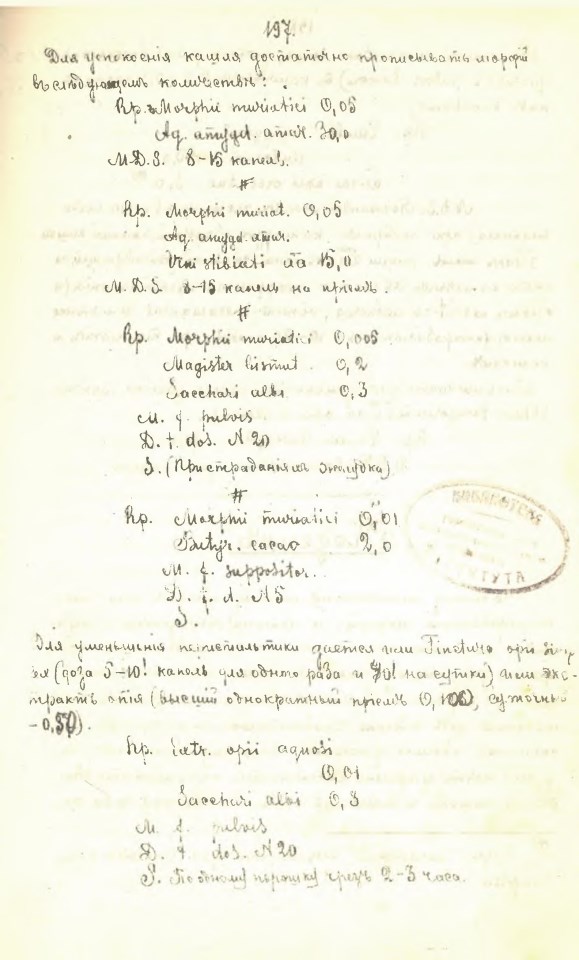 197.
Для успокоенія кашля достаточно прописывать морфій
въ слѣдующемъ количествѣ:
Rp. Morphii muriatici 0,05
Aq. amygd. amar. 30,0
M.D.S. 8-15 капель.
#
Rp. Morphii muriat. 0,05
Aq. amygd. amar.
Vini stibiati āā 15,0
M. D. S. 8-15 капель на пріемъ.
#
Rp. Morphii muriatici 0,005
Magister bismut. 0,2
Sacchari albi 0,3
M. f. pulvis.
D. t. dos. N 20
S. (При страданіяхъ желудка)
#
Rp. Morphii muriatici 0,01
Butyr. cacao 2,0
M. f. suppositor.
D. t. d. N 5
S.
БИБЛІОТЕКА
ТУТА
Для уменьшенія перистальтики дается или Tinctura opii
(доза 5-10! капель для одного раза и на сутки) или экс-
трактъ опія (высшій однократный пріемъ суточный
Rp. Extr. opii aquosi
0,01
Sacchari albi 0,3
M. f. pulvis
D. t. dos. N 20
S. По одному порошку чрезъ 2-3 часа.